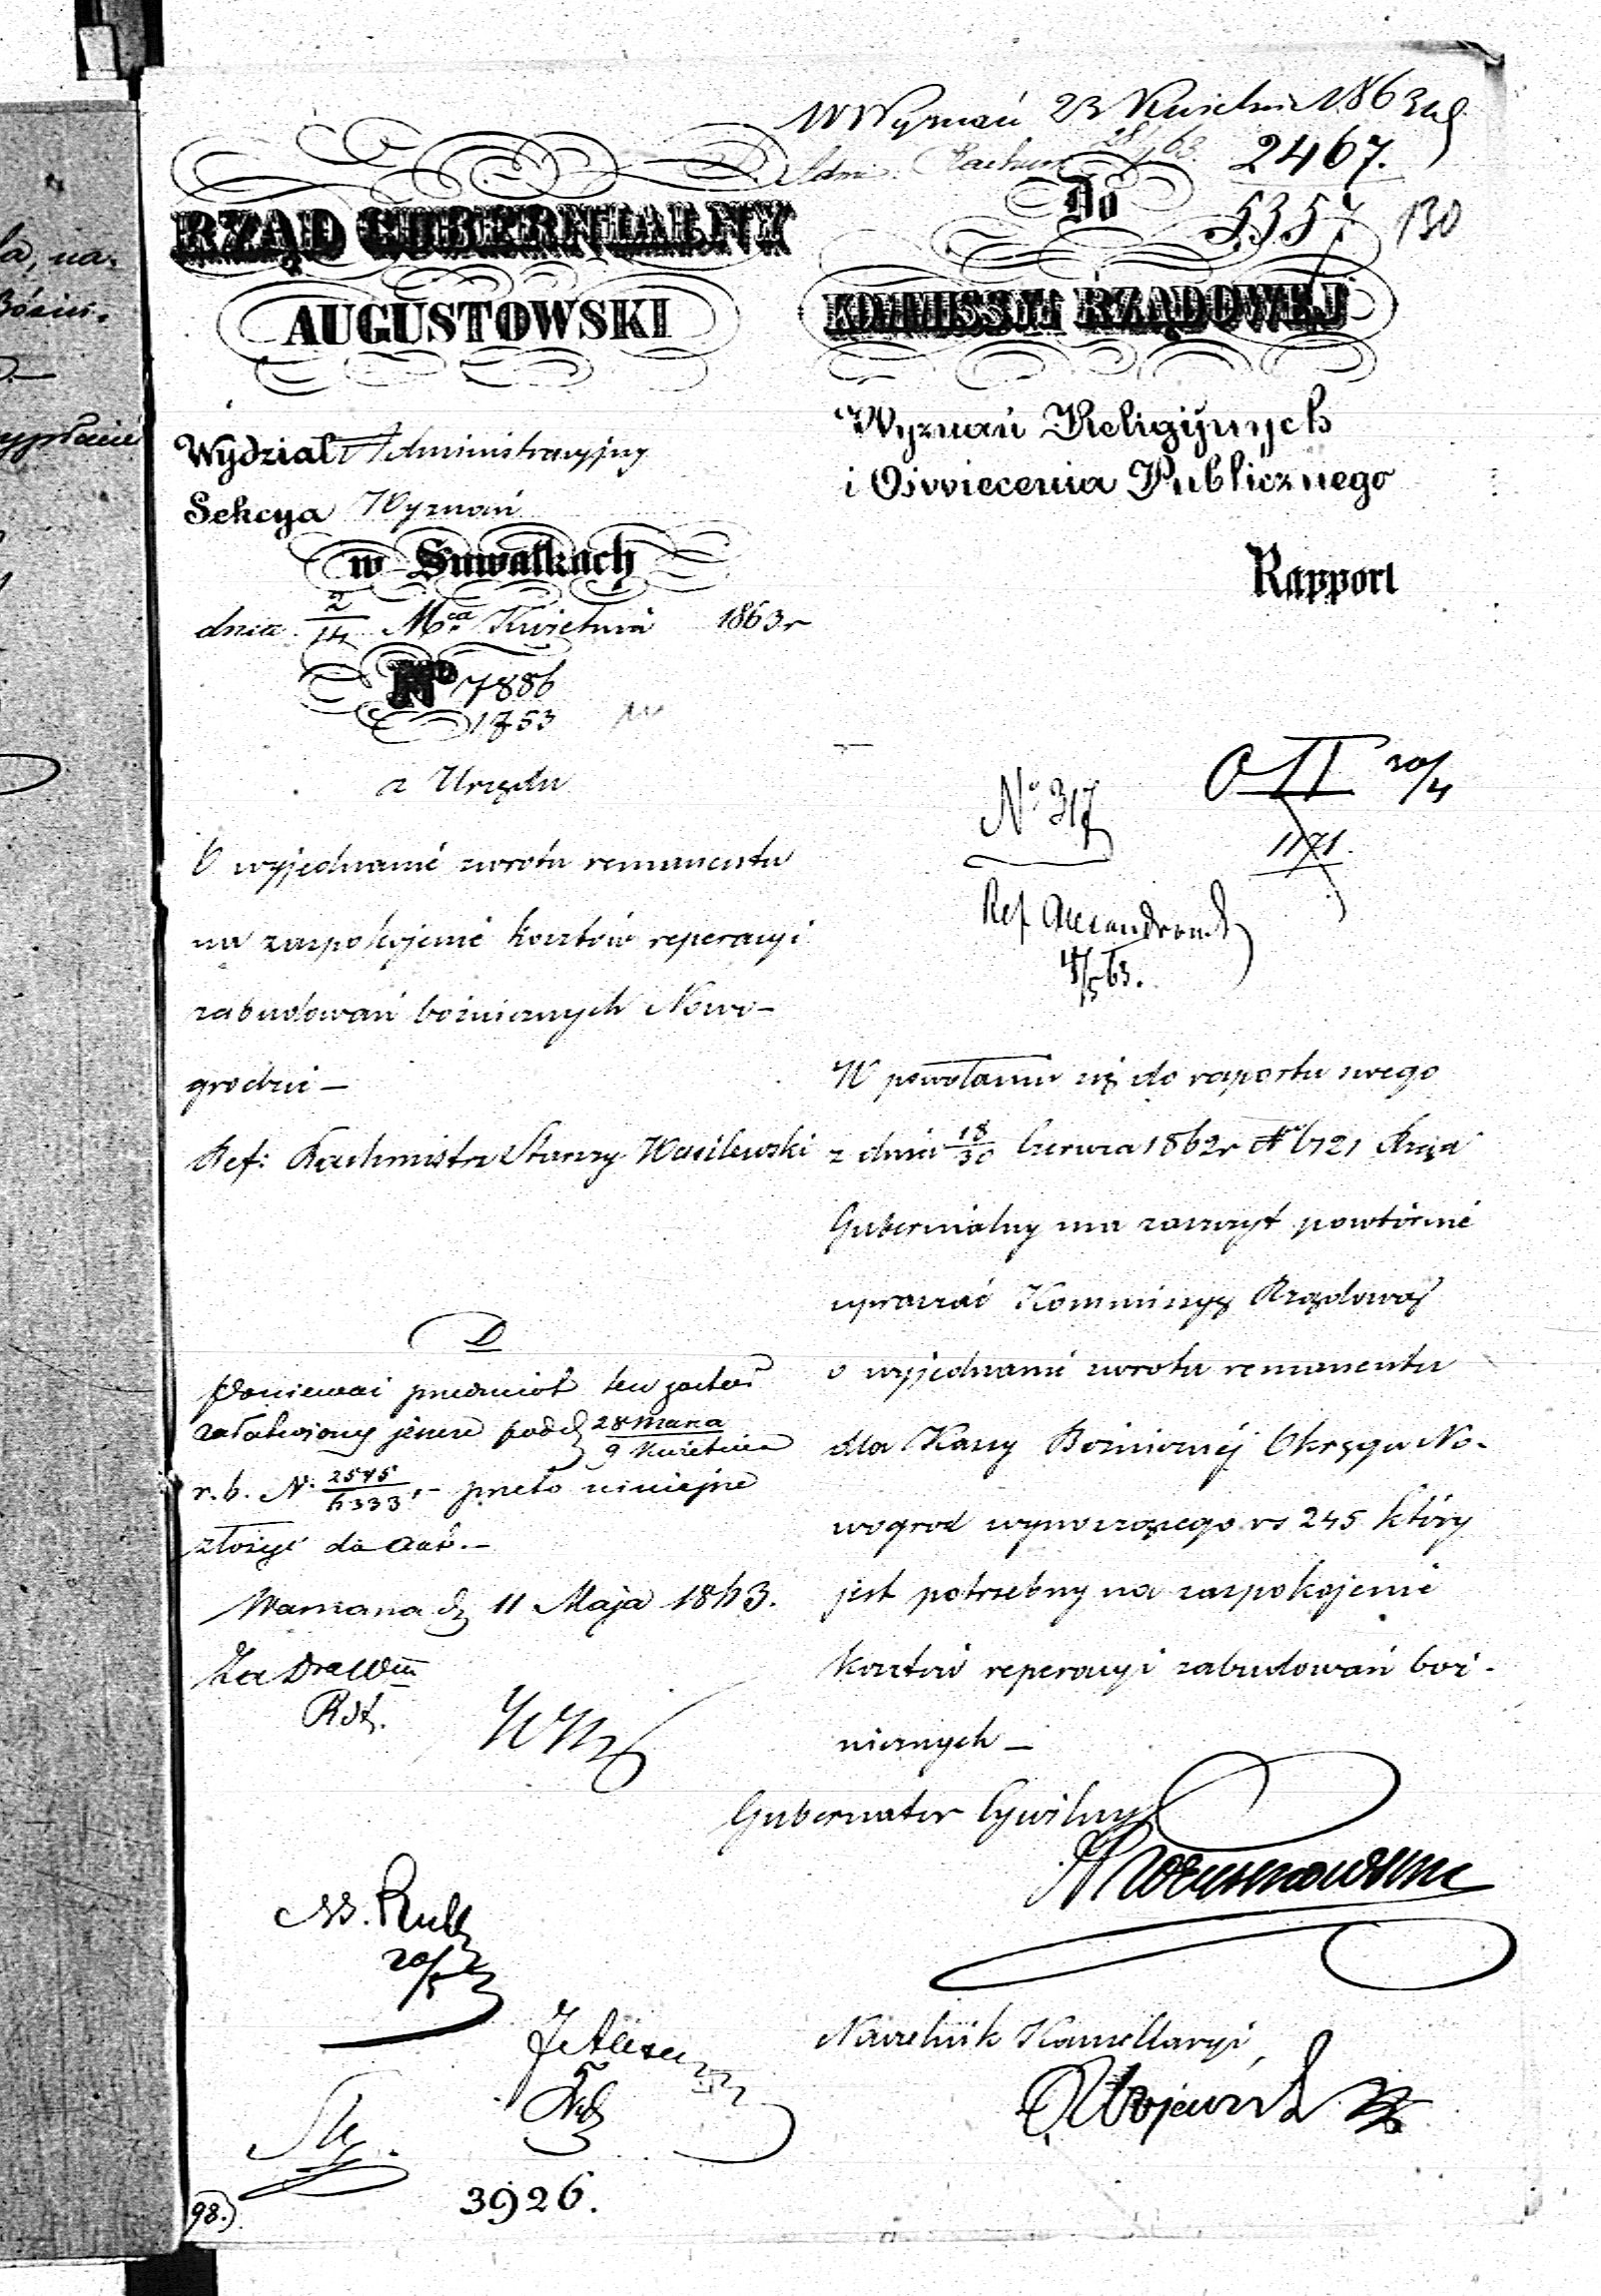 W Wyznań 23 Kwietnia 1863
2467.
5357
130
RZĄD GUBERNIALNY
AUGUSTOWSKI
Do
KOMMISSYI RZĄDOWEJ
Wyznań Religijnych
i Oświecenia Publicznego
Rapport
Wydział Administracyjny
Sekcya Wyznań
w Suwałkach
dnia 2/14 Mca Kwietnia 1863 r
No 7886
1753
z Urzędu
O wyjednanie zwrotu remanentu
na zaspokojenie kosztów reperacyi
zabudowań bożniczych Nowo-
grodzie —
Ref: Rachmistrz Starszy Wasilewski
No 317
O II 20/4
1171.
Ref
4/5 63.
W powołaniu się do raportu swego
z dnia 18/30 Czerwca 1862 r No 6721 Rząd
Gubernialny ma zaszczyt powtórnie
upraszać Kommissyę Rządową
o wyjednanie zwrotu remanentu
dla Kassy Bożniczej Okręgu No-
wogrod wynoszącego rs 245 który
jest potrzebny na zaspokojenie
kosztów reperacyi zabudowań boż-
niczych —
Gubernator Cywilny
Naczelnik Kancellaryi
D
Ponieważ przedmiot ten został
załatwiony jeszcze pod d 28 Marca / 9 Kwietnia
r. b. N. 2545/6333, – przeto niniejsze
złożyć do akt. –
Warszawa d 11 Maja 1863.
Za Dra Wzn
20/5
3926.
98.)